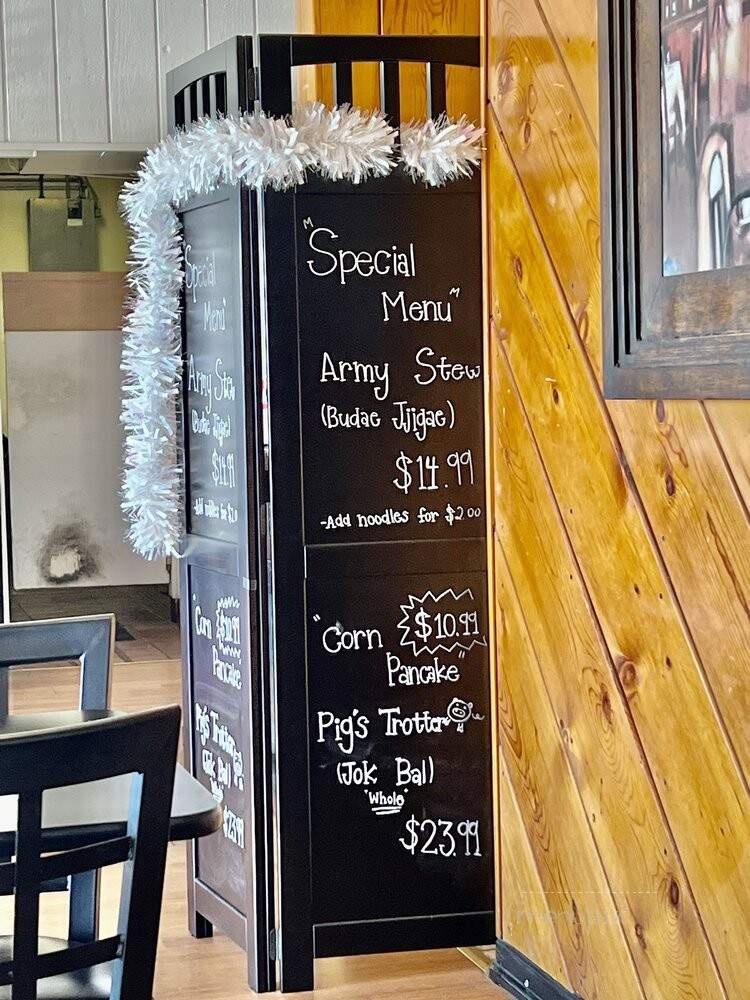 "Special
Menu"
Army Stew
(Budae Jjigae)
$14.99
-Add noodles for $2.00
"Corn $10.99
Pancake"
Pig's Trotter
(Jok Bal)
"Whole"
$23.99
Special
Menu"
Army Stew
(Budae Jjigae)
$14.99
-Add noodles for $2.0
"Corn $10.99
Pancake"
Pig's Trotter
(Jok Bal)
$23.99